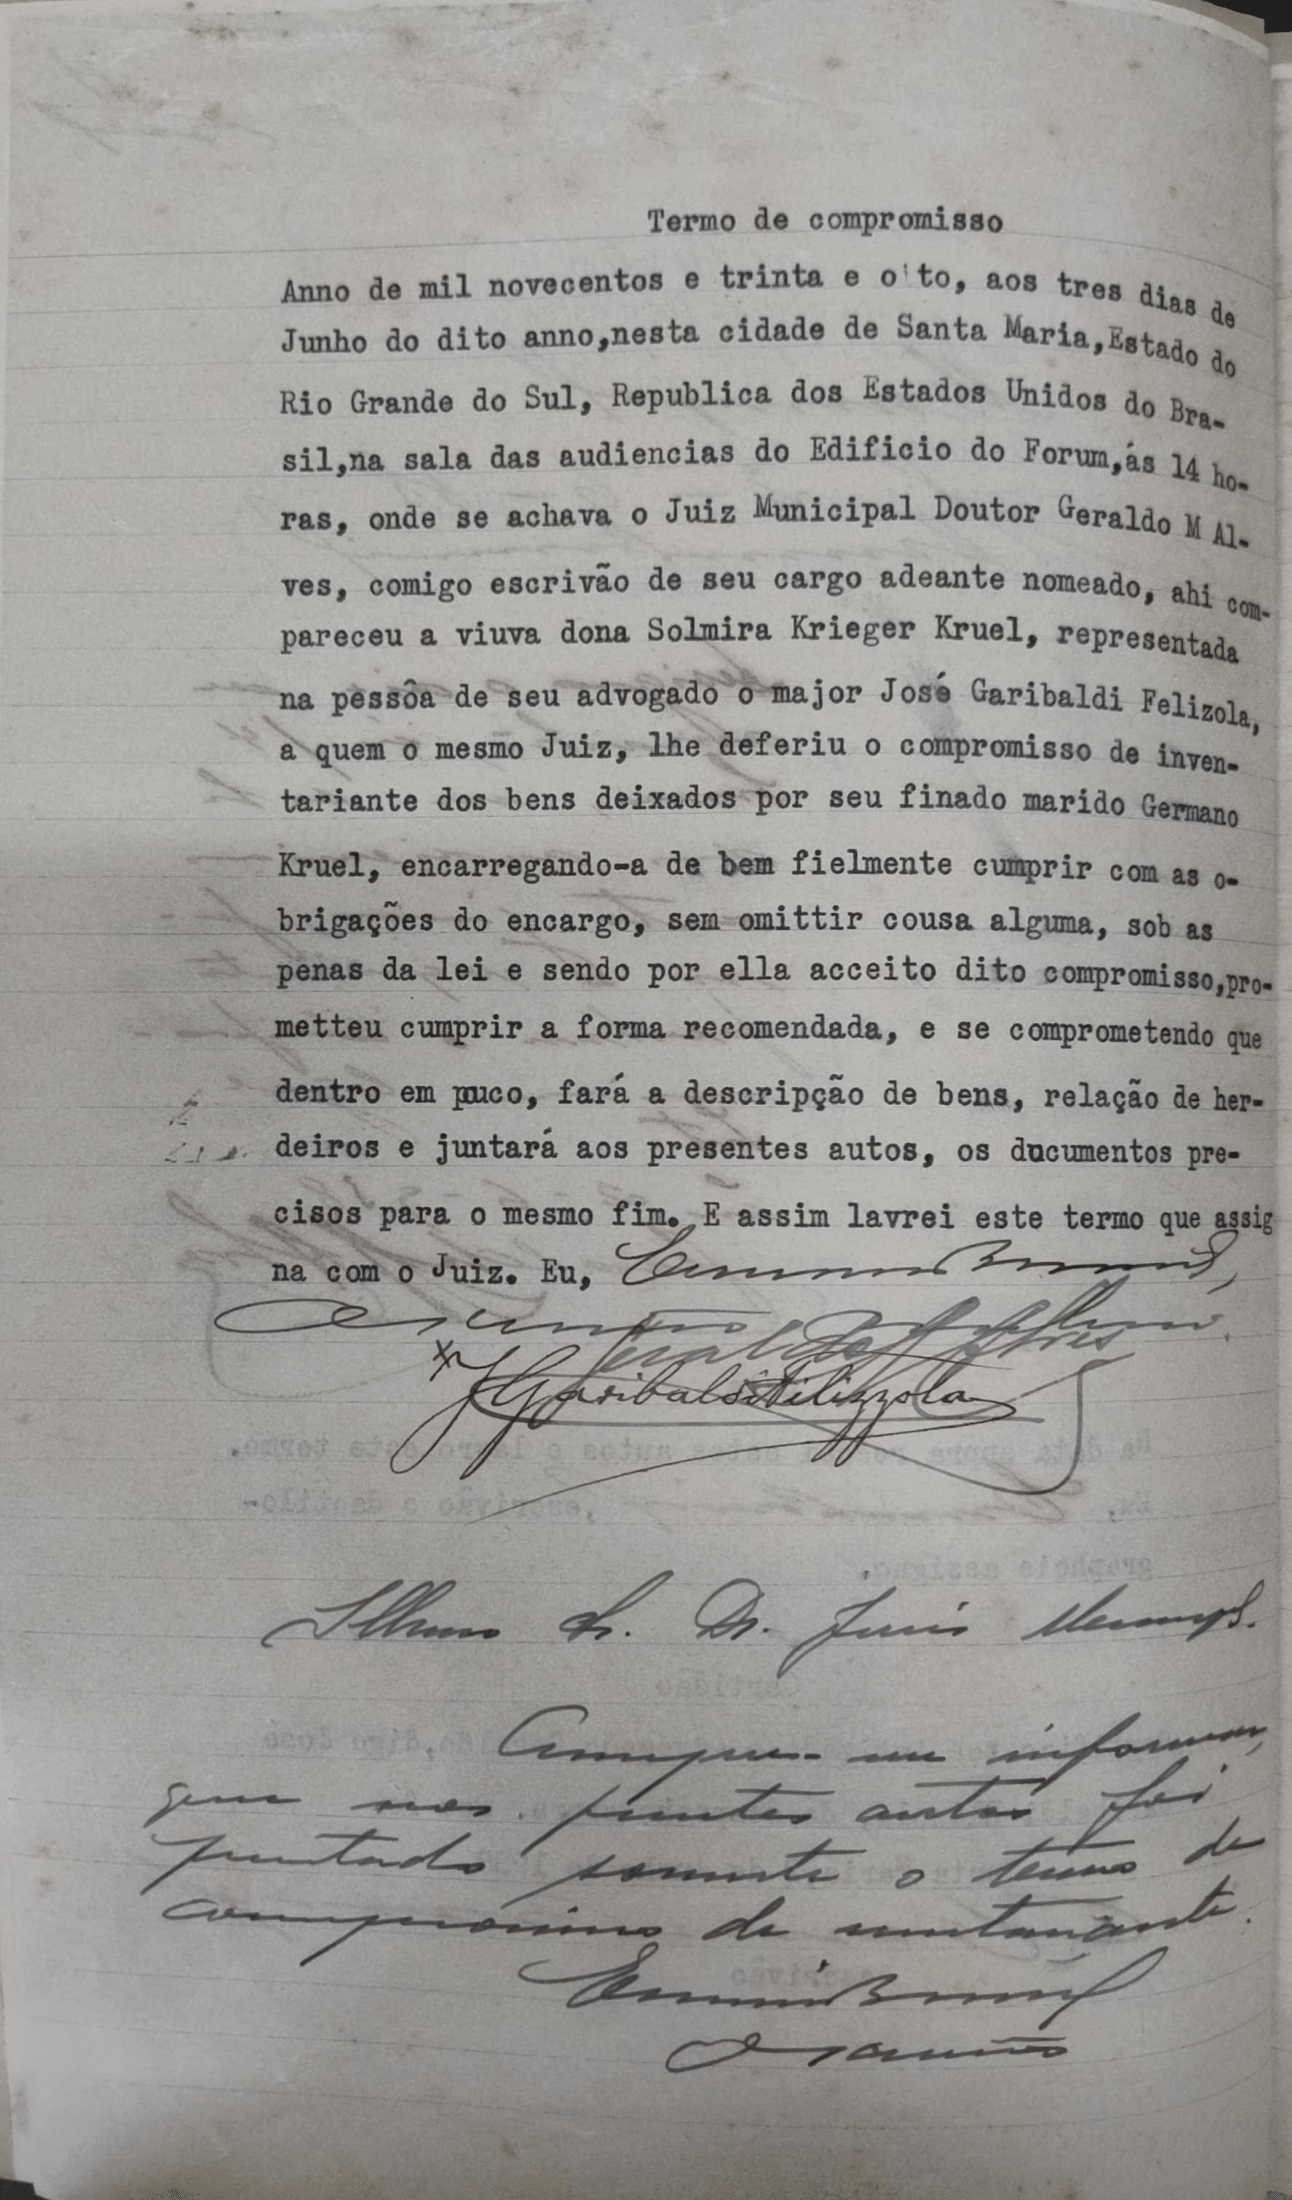 Termo de compromisso
Anno de mil novecentos e trinta e oito, aos tres dias de
Junho do dito anno,nesta cidade de Santa Maria,Estado do
Rio Grande do Sul, Republica dos Estados Unidos do Bra-
sil,na sala das audiencias do Edificio do Forum,ás 14 ho-
ras, onde se achava o Juiz Municipal Doutor Geraldo M Al-
ves, comigo escrivão de seu cargo adeante nomeado, ahi com-
pareceu a viuva dona Solmira Krieger Kruel, representada
na pessôa de seu advogado o major José Garibaldi Felizola,
a quem o mesmo Juiz, lhe deferiu o compromisso de inven-
tariante dos bens deixados por seu finado marido Germano
Kruel, encarregando-a de bem fielmente cumprir com as o-
brigações do encargo, sem omittir cousa alguma, sob as
penas da lei e sendo por ella acceito dito compromisso,pro-
metteu cumprir a forma recomendada, e se comprometendo que
dentro em puco, fará a descripção de bens, relação de her-
deiros e juntará aos presentes autos, os ducumentos pre-
cisos para o mesmo fim. E assim lavrei este termo que assig
na com o Juiz. Eu,
Escrivão
Geraldo M Alves
JGaribaldi Filizzola
Illmo Sr. Dr. Juiz Municipal.
Cumpre-me informar,
que nos autos foi
juntado somente o termo de
compromisso de inventariante.
Escrivão